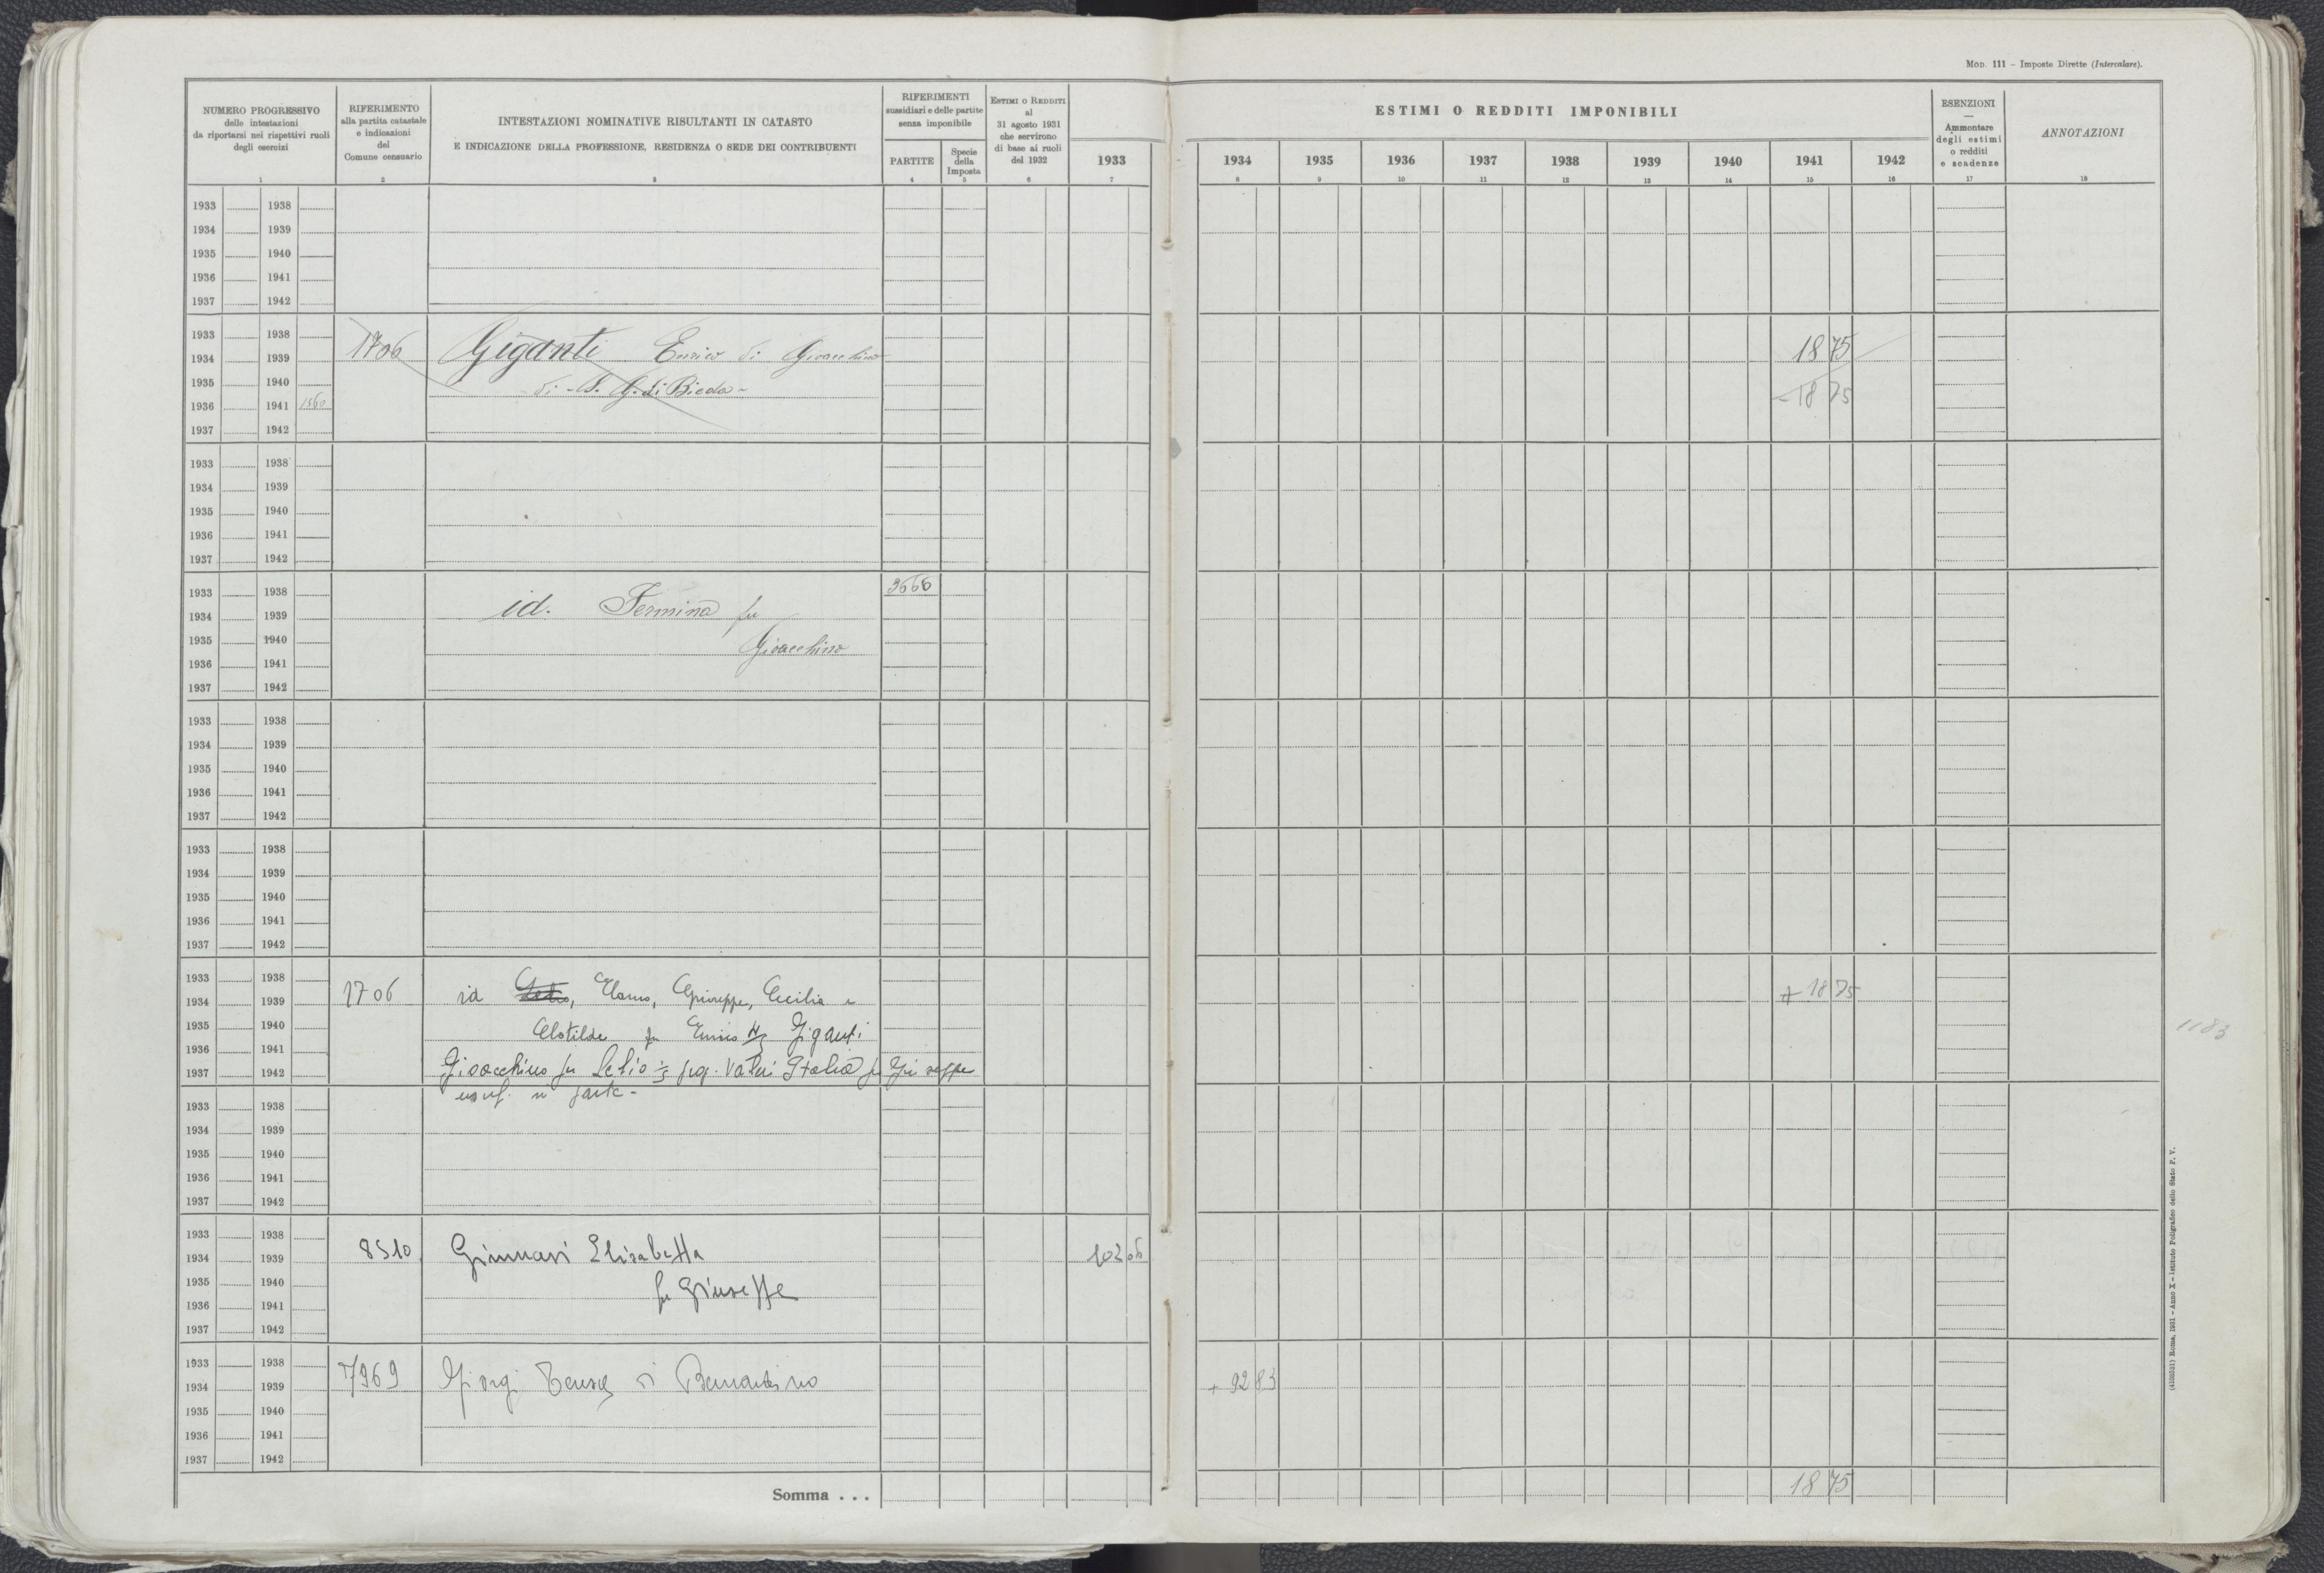 MOD. 111 – Imposte Dirette (Intercalare).
NUMERO PROGRESSIVO
delle intestazioni
da riportarsi nei rispettivi ruoli
degli esercizi
1
RIFERIMENTO
alla partita catastale
e indicazioni
del
Comune censuario
2
INTESTAZIONI NOMINATIVE RISULTANTI IN CATASTO
E INDICAZIONE DELLA PROFESSIONE, RESIDENZA O SEDE DEI CONTRIBUENTI
3
RIFERIMENTI
sussidiari e delle partite
senza imponibile
PARTITE
4
Specie
della
Imposta
5
ESTIMI O REDDITI
al
31 agosto 1931
che servirono
di base ai ruoli
del 1932
6
ESTIMI O REDDITI IMPONIBILI
1933 1934 1935 1936 1937 1938 1939 1940 1941 1942
7 8 9 10 11 12 13 14 15 16
ESENZIONI
—
Ammontare
degli estimi
o redditi
e scadenze
17
ANNOTAZIONI
18
1933 1938
1934 1939
1935 1940
1936 1941
1937 1942
1933 1938
1706 Giganti Enrico di Gioacchino 1875
1934 1939
1935 1940
di - S. G. di Bieda - -1875
1936 1941 1560
1937 1942
1933 1938
1934 1939
1935 1940
1936 1941
1937 1942
1933 1938 3666
id. Fermina fu
1934 1939
1935 1940
Gioacchino
1936 1941
1937 1942
1933 1938
1934 1939
1935 1940
1936 1941
1937 1942
1933 1938
1934 1939
1935 1940
1936 1941
1937 1942
1933 1938
1706 id Giuseppe, Cecilia e + 1875
1934 1939
1935 1940
Clotilde fu Enrico Giganti 1183
1936 1941
1937 1942
Gioacchino fu Lelio Italia fu Giuseppe
usuf. in parte -
1933 1938
1934 1939
1935 1940
1936 1941
1937 1942
1933 1938
8510 Ginnasi Elisabetta 10206
1934 1939
1935 1940
fu Giuseppe
1936 1941
1937 1942
1933 1938
7969 Giorgi di Bernardino + 9283
1934 1939
1935 1940
1936 1941
1937 1942
Somma . . . 1875
(4103531) Roma, 1931 – Anno X – Istituto Poligrafico dello Stato P. V.